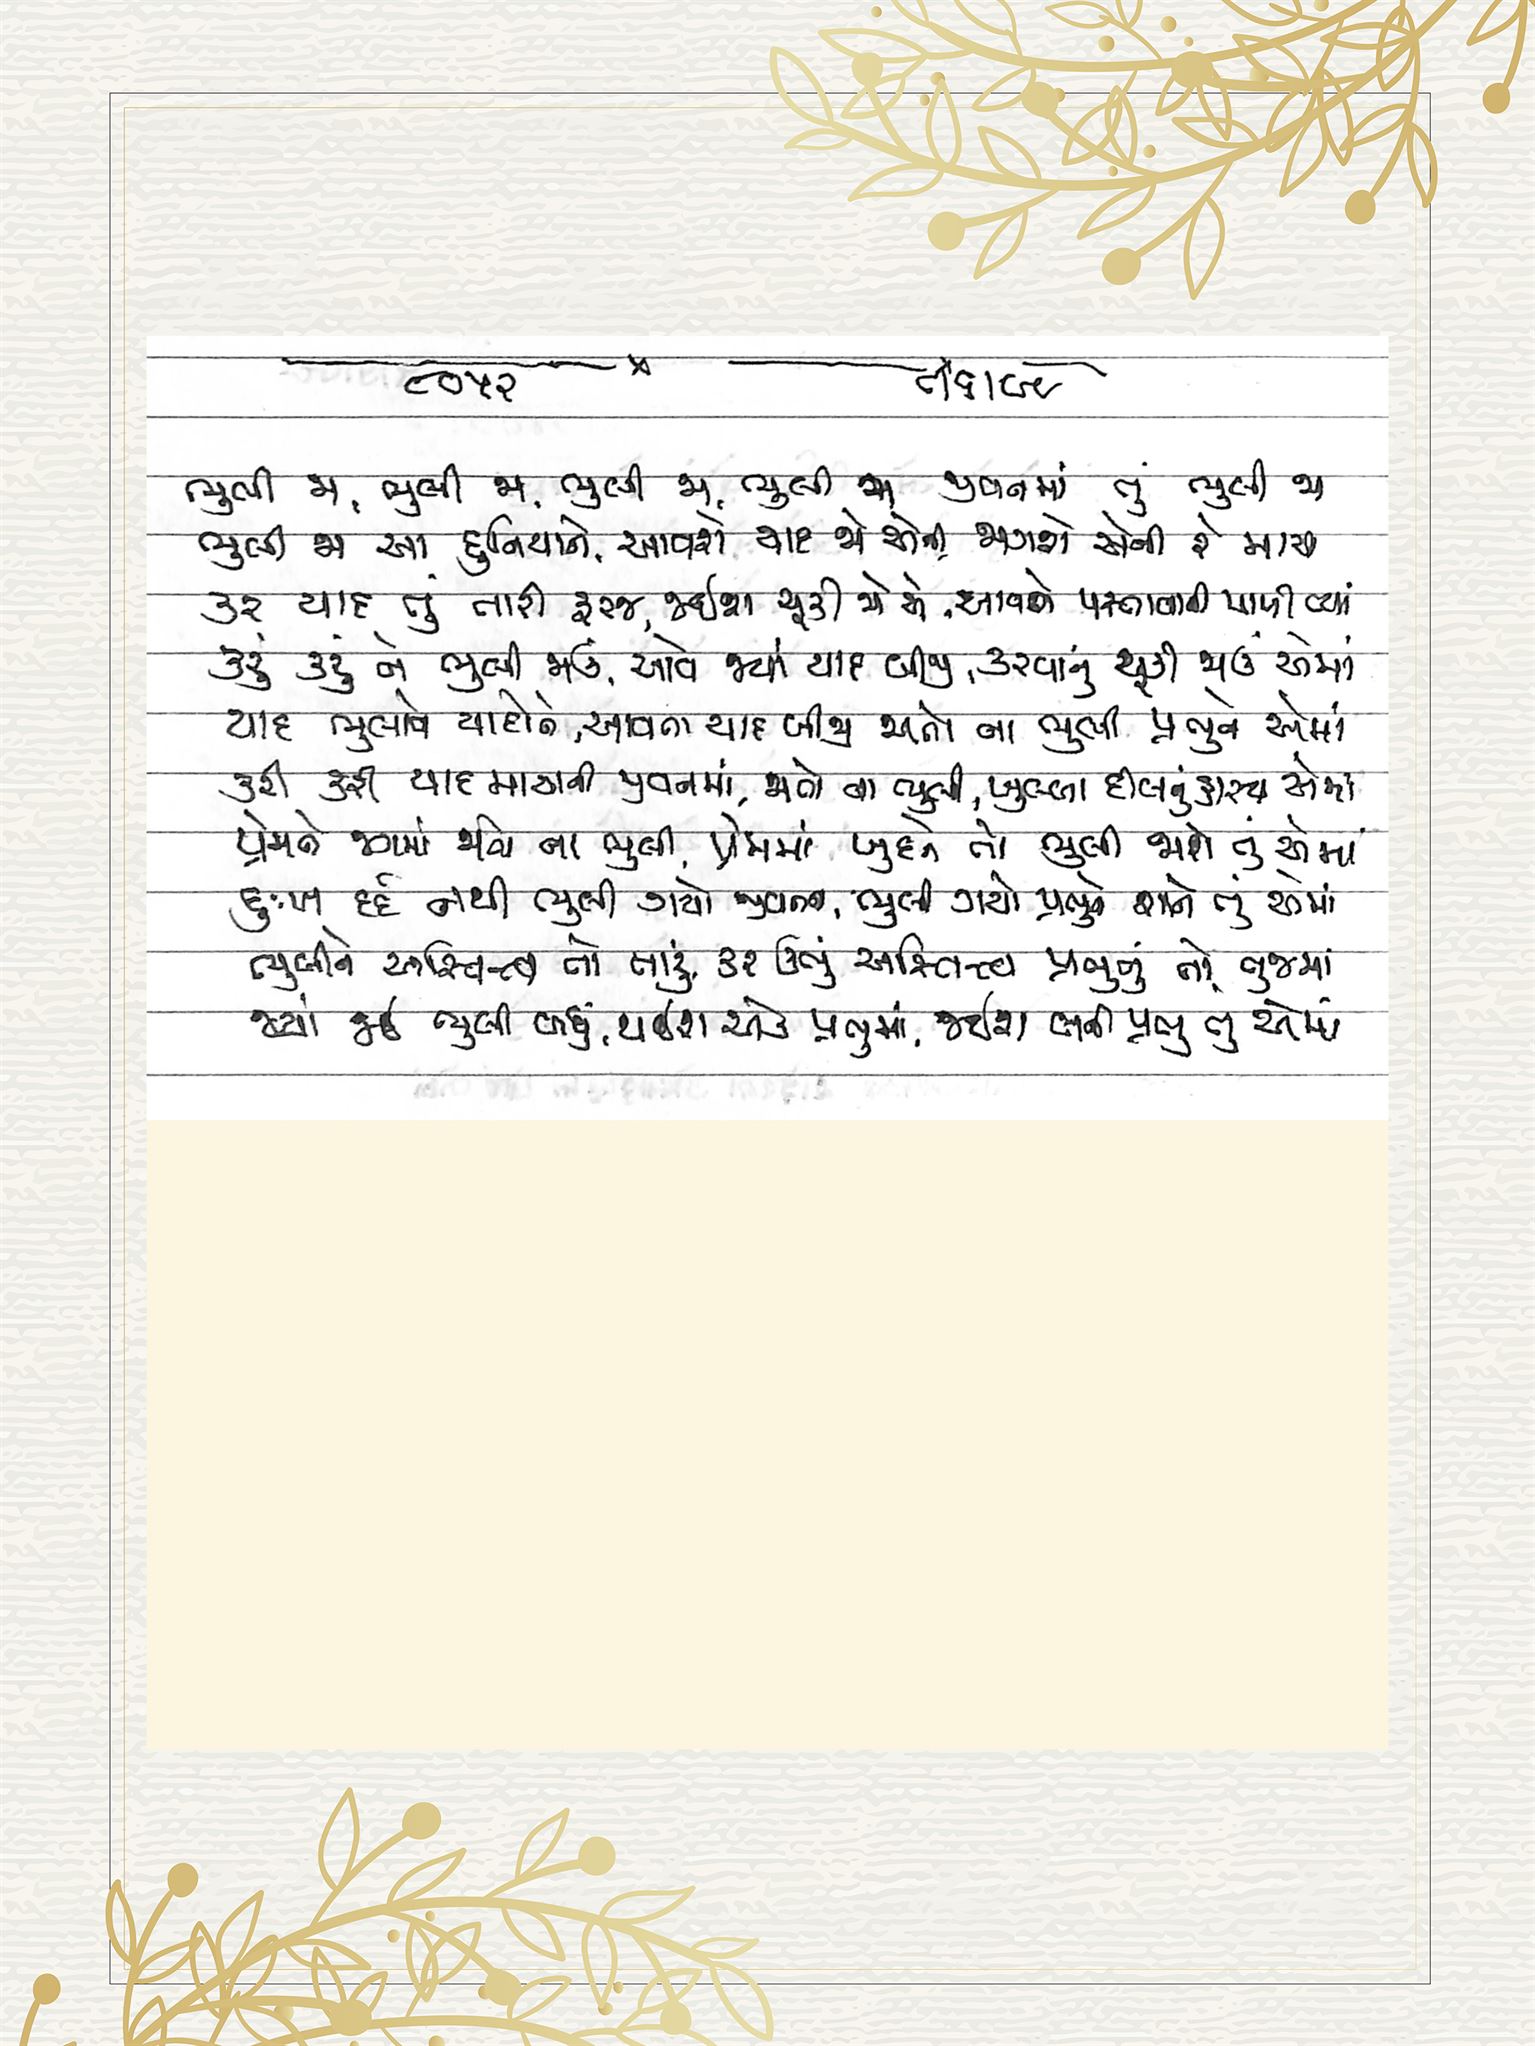 ૮૦૫૨
ભુલી જા, ભુલી જા, ભુલી જા, ભુલી જા જીવનમાં તું ભુલી જા
ભુલી જા આ દુનિયાને, આવશે યાદ જો એની, જાગશે એની રે માયા
કર યાદ તું તારી ફરજ, જઈશ ચૂકી જો એ, આવશે પસ્તાવાની પાળી ત્યાં
કરું કરું ને ભુલી જાઉં, આવે જ્યાં યાદ બીજી, કરવાનું ચૂકી જાઉં એમાં
યાદ ભુલાવે યાદોને, આવતા યાદ બીજી જાતો ના ભુલી પ્રભુને એમાં
કરી કરી યાદ માયાની જીવનમાં, જાતો ના ભુલી, ખુલ્લા દીલનું હાસ્ય એમાં
પ્રેમને જગમાં જાજે ના ભુલી, પ્રેમમાં ખુદને તો ભુલી જાશે તું એમાં
દુઃખ દર્દ નથી ભુલી ગયો જીવનમાં, ભુલી ગયો પ્રભુને શાને તું એમાં
ભુલીને અસ્તિત્વ તો તારું, કર ઊભું અસ્તિત્વ પ્રભુનું તો તુજમાં
જ્યાં જઈ ભુલી બધું, થઈશ એક પ્રભુમાં, જઈશ બની પ્રભુ તું એમાં